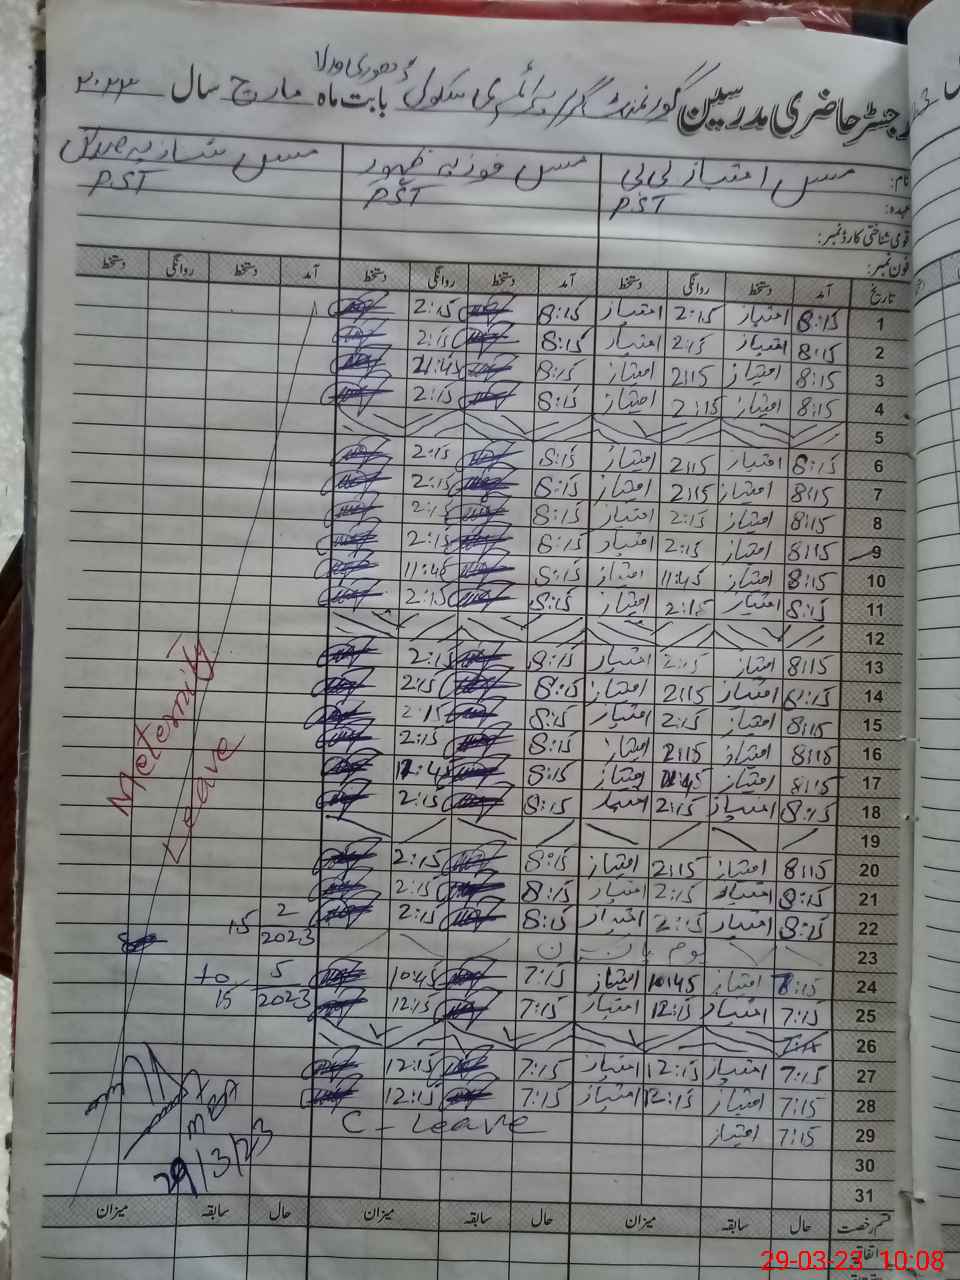 رجسٹر حاضری مدرسین گورنمنٹ گرلز پرائمری سکول بابت ماہ مارچ سال ۲۰۲۳
نام: مس امتیاز بی بی مس فوزیہ ظہور مس
عہدہ: PST PST PST
قومی شناختی کارڈ نمبر:
فون نمبر:
تاریخ آمد دستخط روانگی دستخط آمد دستخط روانگی دستخط آمد دستخط روانگی دستخط
1 8:15 امتیاز 2:15 امتیاز 8:15 2:15
2 8:15 امتیاز 2:15 امتیاز 8:15 2:15
3 8:15 امتیاز 2:15 امتیاز 8:15
4 8:15 امتیاز 2:15 امتیاز 8:15 2:15
5
6 8:15 امتیاز 2:15 امتیاز 8:15 2:15
7 8:15 امتیاز 2:15 امتیاز 8:15 2:15
8 8:15 امتیاز 2:15 امتیاز 8:15 2:15
9 8:15 امتیاز 2:15 امتیاز 8:15 2:15
10 8:15 امتیاز 11:45 امتیاز 8:15 11:45
11 8:15 امتیاز 2:15 امتیاز 8:15 2:15
12
13 8:15 امتیاز 2:15 امتیاز 8:15 2:15
14 8:15 امتیاز 2:15 امتیاز 8:15 2:15
15 8:15 امتیاز 2:15 امتیاز 8:15 2:15
16 8:15 امتیاز 2:15 امتیاز 8:15 2:15
17 8:15 امتیاز امتیاز 8:15
18 8:15 امتیاز 2:15 امتیاز 8:15 2:15
19
20 8:15 امتیاز 2:15 امتیاز 8:15 2:15
21 8:15 امتیاز 2:15 امتیاز 8:15 2:15
22 8:15 امتیاز 2:15 امتیاز 8:15 2:15
23 یوم پاکستان
24 امتیاز 10:45 امتیاز 7:15 10:45
25 7:15 امتیاز 12:15 امتیاز 7:15 12:15
26
27 7:15 امتیاز 12:15 امتیاز 7:15 12:15
28 7:15 امتیاز 12:15 امتیاز 7:15 12:15
29 7:15 امتیاز C - Leave
30
31
Meternity
Leave
15 2
2023
to 5
15 2023
29/3/23
قسم رخصت حال سابقہ میزان حال سابقہ میزان حال سابقہ میزان
اتفاقیہ
29-03-23 10:08